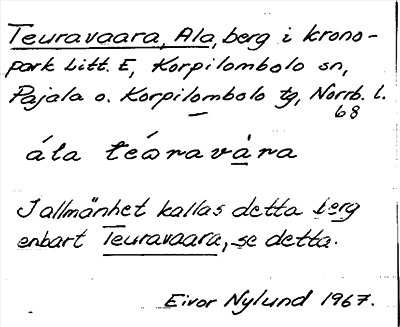 Teuravaara, Ala, berg i krono-
park Litt. E, Korpilombolo sn,
Pajala o. Korpilombolo tg, Norrb. l.
68
ála téɷravàra
I allmänhet kallas detta berg
enbart Teuravaara, se detta.
Eivor Nylund 1967.